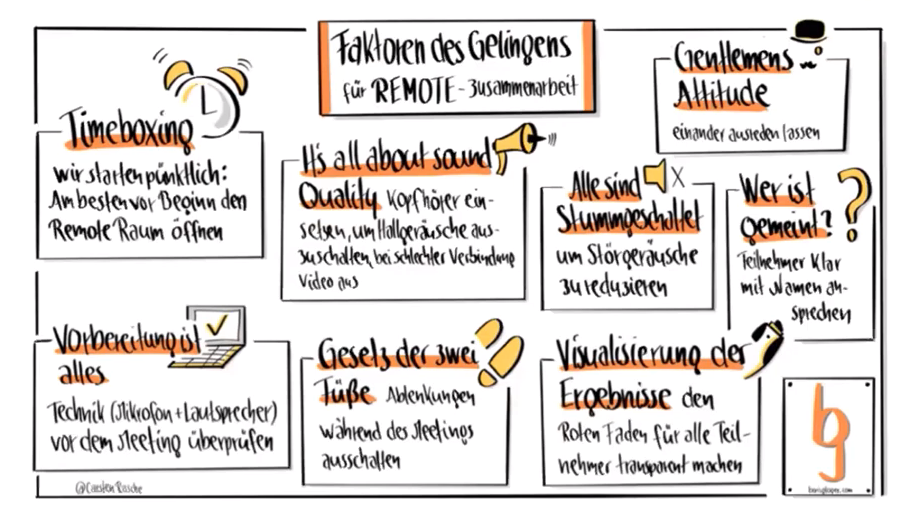 Faktoren des Gelingens
für REMOTE - Zusammenarbeit
Gentlemens
Attitude
einander ausreden lassen
Timeboxing
wir starten pünktlich:
Am besten vor Beginn den
Remote Raum öffnen
It's all about sound
Quality Kopfhörer ein-
setzen, um Hallgeräusche aus-
zuschalten, bei schlechter Verbindung
Video aus
Alle sind
Stummgeschaltet
um Störgeräusche
zu reduzieren
Wer ist
gemeint?
Teilnehmer klar
mit Namen an-
sprechen
Vorbereitung ist
alles
Technik (Mikrofon + Lautsprecher)
vor dem Meeting überprüfen
Gesetz der zwei
Füße Ablenkungen
während des Meetings
ausschalten
Visualisierung der
Ergebnisse den
Roten Faden für alle Teil-
nehmer transparent machen
bg
@Carsten Rasche